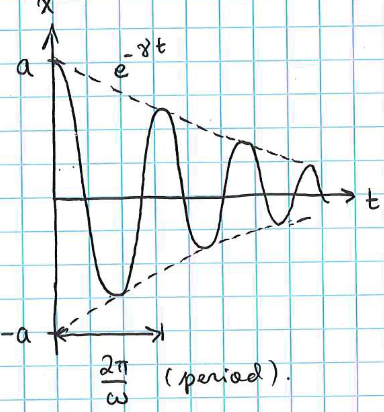 x
a
e^-γt
t
-a
2π/ω (period).